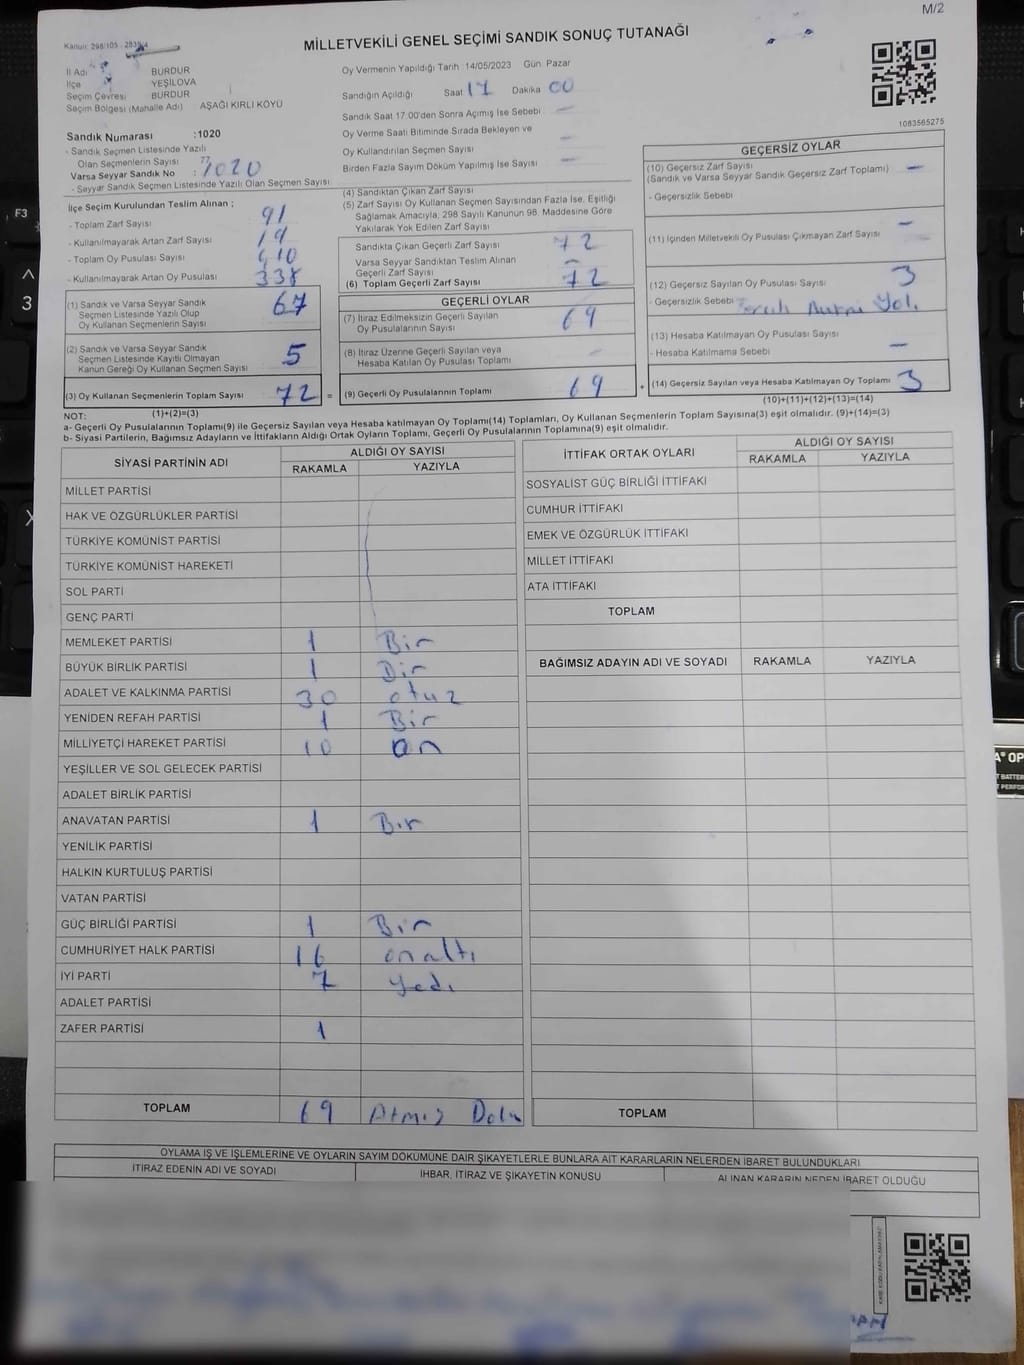 M/2
Kanun: 298/105 - 2839/4
MİLLETVEKİLİ GENEL SEÇİMİ SANDIK SONUÇ TUTANAĞI
İl Adı BURDUR
İlçe YEŞİLOVA
Seçim Çevresi BURDUR
Seçim Bölgesi (Mahalle Adı) AŞAĞI KIRLI KÖYÜ
Sandık Numarası :1020
- Sandık Seçmen Listesinde Yazılı
Olan Seçmenlerin Sayısı 77
Varsa Seyyar Sandık No : 1020
- Seyyar Sandık Seçmen Listesinde Yazılı Olan Seçmen Sayısı
Oy Vermenin Yapıldığı Tarih 14/05/2023 Gün: Pazar
Sandığın Açıldığı Saat 17 Dakika 00
Sandık Saat 17:00'den Sonra Açımış İse Sebebi —
Oy Verme Saati Bitiminde Sırada Bekleyen ve
Oy Kullandırılan Seçmen Sayısı —
Birden Fazla Sayım Döküm Yapılmış İse Sayısı —
1083565275
İlçe Seçim Kurulundan Teslim Alınan ;
- Toplam Zarf Sayısı 91
- Kullanılmayarak Artan Zarf Sayısı 19
- Toplam Oy Pusulası Sayısı 410
- Kullanılmayarak Artan Oy Pusulası 338
(1) Sandık ve Varsa Seyyar Sandık
Seçmen Listesinde Yazılı Olup
Oy Kullanan Seçmenlerin Sayısı 67
(2) Sandık ve Varsa Seyyar Sandık
Seçmen Listesinde Kayıtlı Olmayan
Kanun Gereği Oy Kullanan Seçmen Sayısı 5
(3) Oy Kullanan Seçmenlerin Toplam Sayısı 72 =
(4) Sandıktan Çıkan Zarf Sayısı
(5) Zarf Sayısı Oy Kullanan Seçmen Sayısından Fazla İse, Eşitliği
Sağlamak Amacıyla, 298 Sayılı Kanunun 98. Maddesine Göre
Yakılarak Yok Edilen Zarf Sayısı
Sandıkta Çıkan Geçerli Zarf Sayısı 72
Varsa Seyyar Sandıktan Teslim Alınan
Geçerli Zarf Sayısı —
(6) Toplam Geçerli Zarf Sayısı 72
GEÇERLİ OYLAR
(7) İtiraz Edilmeksizin Geçerli Sayılan
Oy Pusulalarının Sayısı 69
(8) İtiraz Üzerine Geçerli Sayılan veya
Hesaba Katılan Oy Pusulası Toplamı —
(9) Geçerli Oy Pusulalarının Toplamı 69 +
GEÇERSİZ OYLAR
(10) Geçersiz Zarf Sayısı
(Sandık ve Varsa Seyyar Sandık Geçersiz Zarf Toplamı) —
- Geçersizlik Sebebi
(11) İçinden Milletvekili Oy Pusulası Çıkmayan Zarf Sayısı —
(12) Geçersiz Sayılan Oy Pusulası Sayısı 3
- Geçersizlik Sebebi
(13) Hesaba Katılmayan Oy Pusulası Sayısı
- Hesaba Katılmama Sebebi —
(14) Geçersiz Sayılan veya Hesaba Katılmayan Oy Toplamı 3
(10)+(11)+(12)+(13)=(14)
NOT: (1)+(2)=(3)
a- Geçerli Oy Pusulalarının Toplamı(9) ile Geçersiz Sayılan veya Hesaba katılmayan Oy Toplamı(14) Toplamları, Oy Kullanan Seçmenlerin Toplam Sayısına(3) eşit olmalıdır. (9)+(14)=(3)
b- Siyasi Partilerin, Bağımsız Adayların ve İttifakların Aldığı Ortak Oyların Toplamı, Geçerli Oy Pusulalarının Toplamına(9) eşit olmalıdır.
SİYASİ PARTİNİN ADI ALDIĞI OY SAYISI
RAKAMLA YAZIYLA
MİLLET PARTİSİ
HAK VE ÖZGÜRLÜKLER PARTİSİ
TÜRKİYE KOMÜNİST PARTİSİ
TÜRKİYE KOMÜNİST HAREKETİ
SOL PARTİ
GENÇ PARTİ
MEMLEKET PARTİSİ 1 Bir
BÜYÜK BİRLİK PARTİSİ 1 Bir
ADALET VE KALKINMA PARTİSİ 30 otuz
YENİDEN REFAH PARTİSİ 1 Bir
MİLLİYETÇİ HAREKET PARTİSİ 10 on
YEŞİLLER VE SOL GELECEK PARTİSİ
ADALET BİRLİK PARTİSİ
ANAVATAN PARTİSİ 1 Bir
YENİLİK PARTİSİ
HALKIN KURTULUŞ PARTİSİ
VATAN PARTİSİ
GÜÇ BİRLİĞİ PARTİSİ 1 Bir
CUMHURİYET HALK PARTİSİ 16 onaltı
İYİ PARTİ 7 Yedi
ADALET PARTİSİ
ZAFER PARTİSİ 1
TOPLAM 69 Atmış Doku
İTTİFAK ORTAK OYLARI ALDIĞI OY SAYISI
RAKAMLA YAZIYLA
SOSYALİST GÜÇ BİRLİĞİ İTTİFAKI
CUMHUR İTTİFAKI
EMEK VE ÖZGÜRLÜK İTTİFAKI
MİLLET İTTİFAKI
ATA İTTİFAKI
TOPLAM
BAĞIMSIZ ADAYIN ADI VE SOYADI RAKAMLA YAZIYLA
TOPLAM
OYLAMA İŞ VE İŞLEMLERİNE VE OYLARIN SAYIM DÖKÜMÜNE DAİR ŞİKAYETLERLE BUNLARA AİT KARARLARIN NELERDEN İBARET BULUNDUKLARI
İTİRAZ EDENİN ADI VE SOYADI İHBAR, İTİRAZ VE ŞİKAYETİN KONUSU ALINAN KARARIN NEDEN İBARET OLDUĞU
F3
3